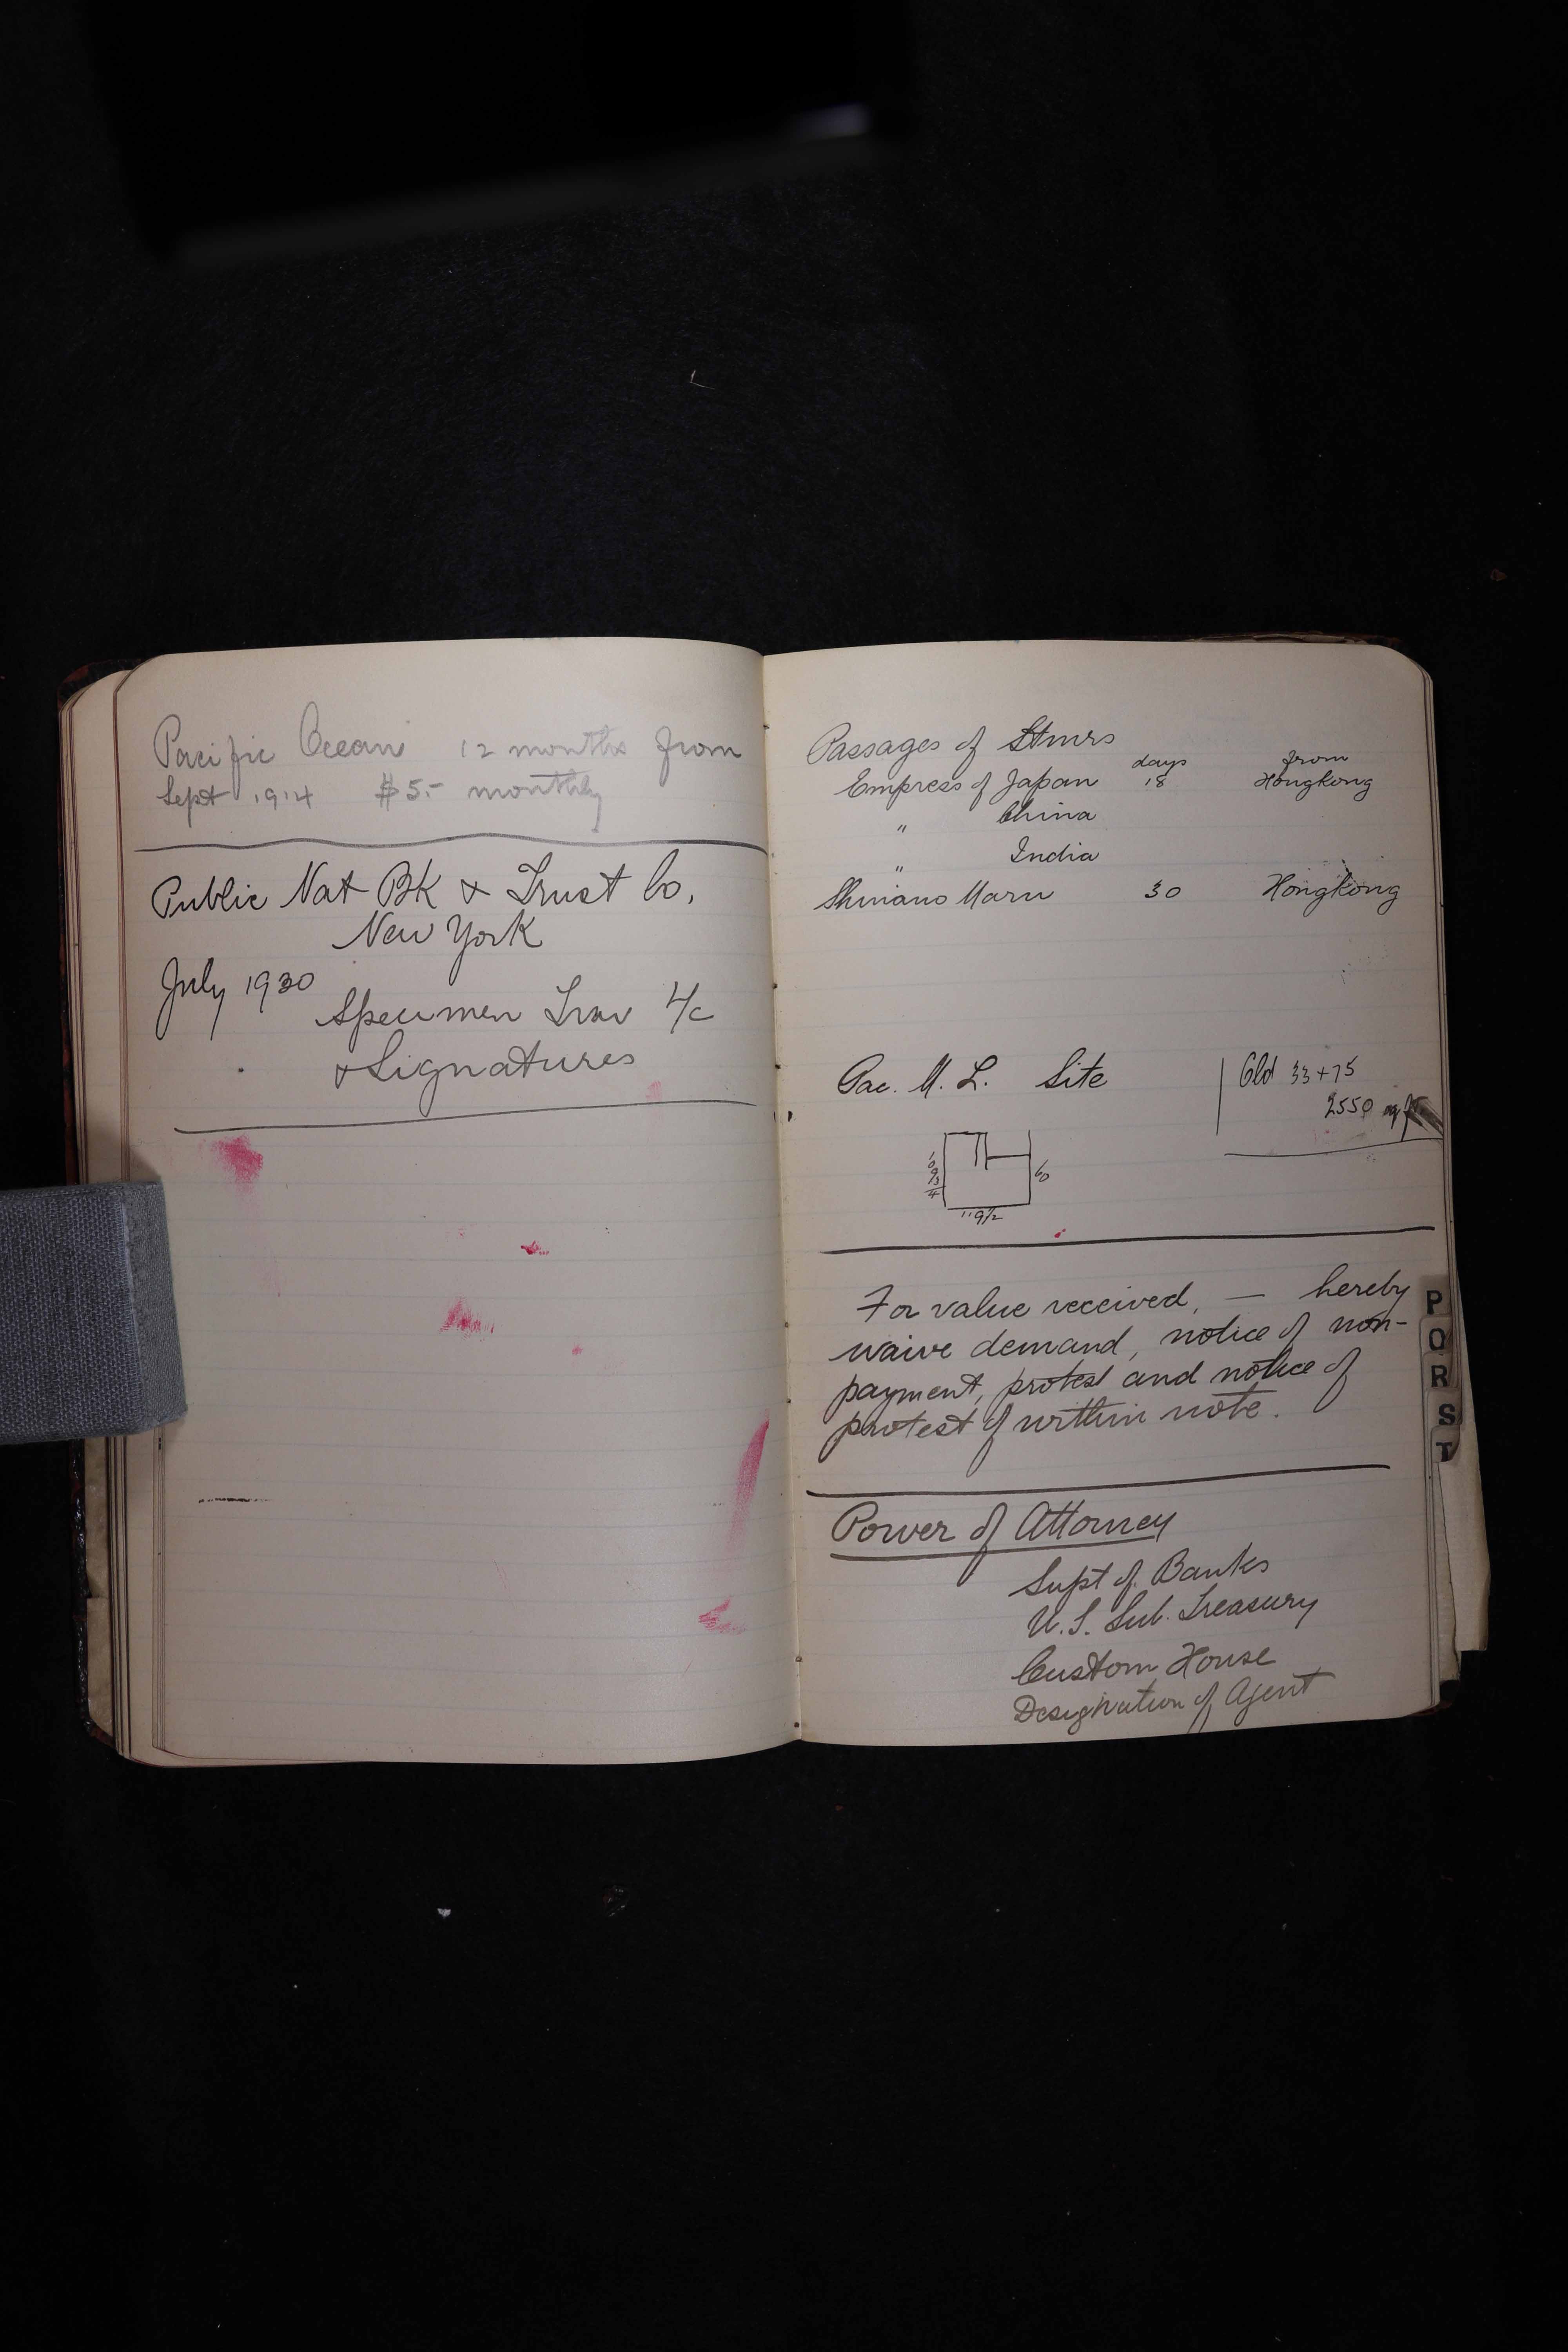 Pacific Ocean 12 months from
Sept 1914 $5.- monthly
Public Nat Bk & Trust Co.
New York
July 1930
Specimen Trav L/c
& Signatures
Passages of Stmrs
days from
Empress of Japan 18 Hongkong
" China
" India
Shinano Maru 30 Hongkong
Pac. M. L. Site
Old 33+75
2550 sq ft
60
119½
For value received, — hereby
waive demand, notice of non-
payment, protest and notice of
protest of within note.
Power of Attorney
Supt of Banks
U.S. Sub. Treasury
Custom House
Designation of Agent
P
Q
R
S
T